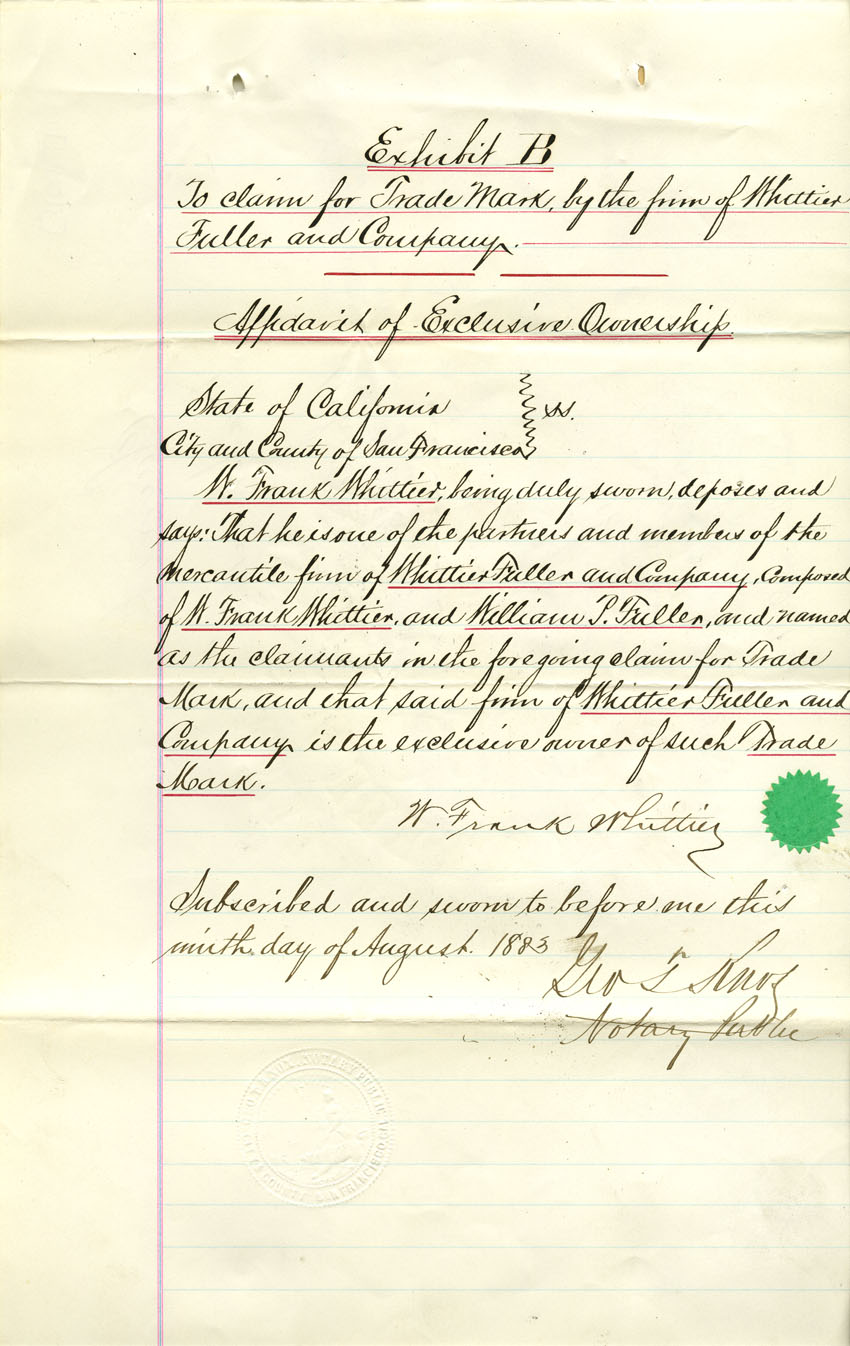 Exhibit B
To claim for Trade Mark, by the firm of Whittier
Fuller and Company.
Affidavit of Exclusive Ownership.
State of California
ss.
City and County of San Francisco
W. Frank Whittier, being duly sworn, deposes and
says: That he is one of the partners and members of the
mercantile firm of Whittier Fuller and Company, composed
of W. Frank Whittier, and William P. Fuller, and named
as the claimants in the foregoing claim for Trade
Mark, and that said firm of Whittier Fuller and
Company is the exclusive owner of such Trade
Mark.
W. Frank Whittier
Subscribed and sworn to before me this
ninth day of August. 1883
Geo T Knox
Notary Public
NOTARY PUBLIC
CITY & COUNTY SAN FRANCISCO